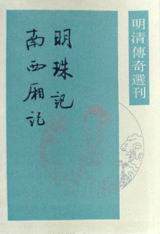 明清傳奇選刊
明珠記
南西廂記